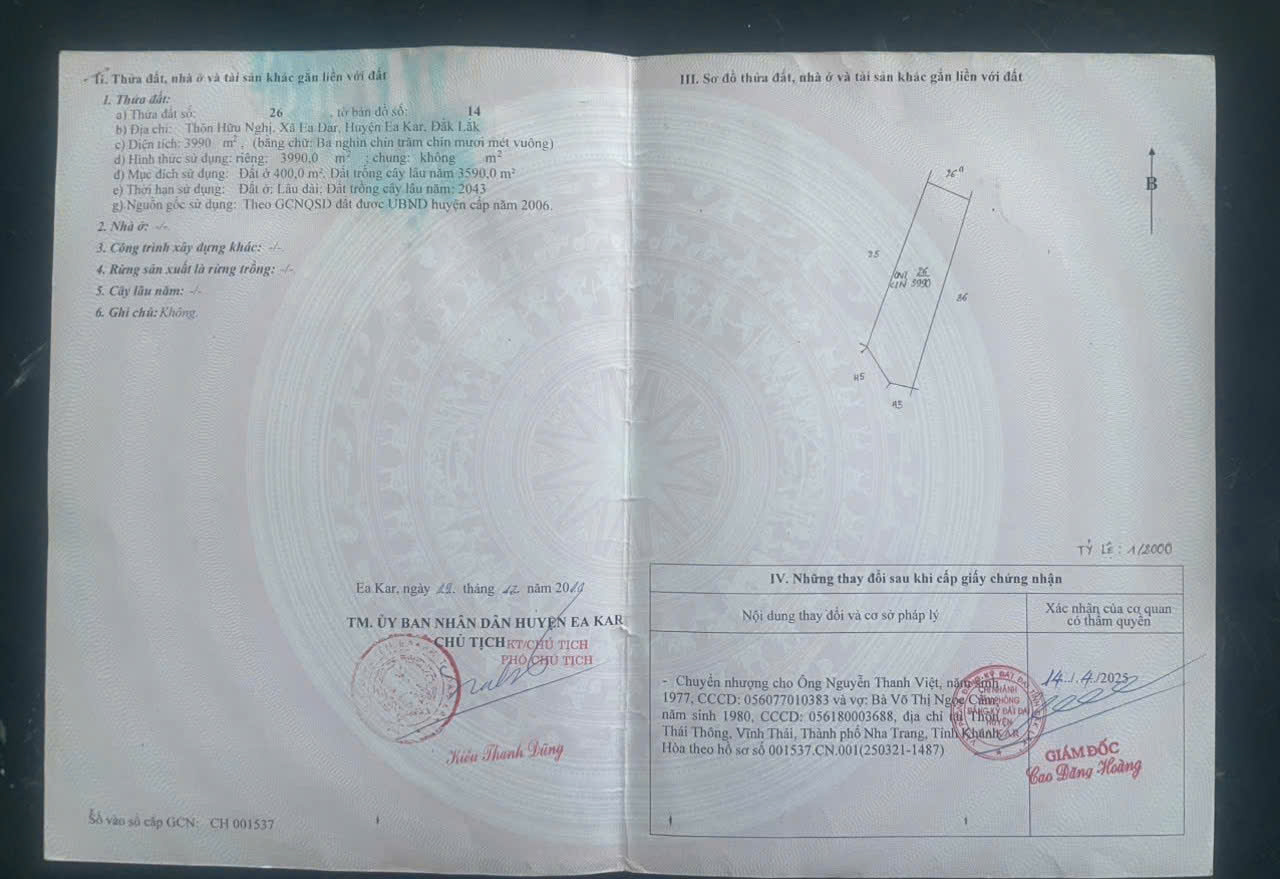 II. Thửa đất, nhà ở và tài sản khác gắn liền với đất
1. Thửa đất:
a) Thửa đất số: 26 , tờ bản đồ số: 14
b) Địa chỉ: Thôn Hữu Nghị, Xã Ea Đar, Huyện Ea Kar, Đắk Lắk
c) Diện tích: 3990 m², (bằng chữ: Ba nghìn chín trăm chín mươi mét vuông)
d) Hình thức sử dụng: riêng: 3990,0 m² ; chung: không m²
đ) Mục đích sử dụng: Đất ở 400,0 m², Đất trồng cây lâu năm 3590,0 m²
e) Thời hạn sử dụng: Đất ở: Lâu dài; Đất trồng cây lâu năm: 2043
g) Nguồn gốc sử dụng: Theo GCNQSD đất được UBND huyện cấp năm 2006.
2. Nhà ở: -/-
3. Công trình xây dựng khác: -/-
4. Rừng sản xuất là rừng trồng: -/-
5. Cây lâu năm: -/-
6. Ghi chú: Không.
Ea Kar, ngày 19. tháng 12 năm 2011
TM. ỦY BAN NHÂN DÂN HUYỆN EA KAR
CHỦ TỊCH KT/CHỦ TỊCH
PHÓ CHỦ TỊCH
Kiều Thanh Dũng
Số vào sổ cấp GCN: CH 001537
III. Sơ đồ thửa đất, nhà ở và tài sản khác gắn liền với đất
B
26
3990
86
TỶ LỆ : 1/2000
IV. Những thay đổi sau khi cấp giấy chứng nhận
Nội dung thay đổi và cơ sở pháp lý
Xác nhận của cơ quan
có thẩm quyền
- Chuyển nhượng cho Ông Nguyễn Thanh Việt, năm sinh
1977, CCCD: 056077010383 và vợ: Bà Võ Thị Ngọc Cẩm,
năm sinh 1980, CCCD: 056180003688, địa chỉ tại Thôn
Thái Thông, Vĩnh Thái, Thành phố Nha Trang, Tỉnh Khánh
Hòa theo hồ sơ số 001537.CN.001(250321-1487)
14./.4./2025
CHI NHÁNH
VĂN PHÒNG
ĐĂNG KÝ ĐẤT ĐAI
HUYỆN
GIÁM ĐỐC
Cao Đăng Hoàng